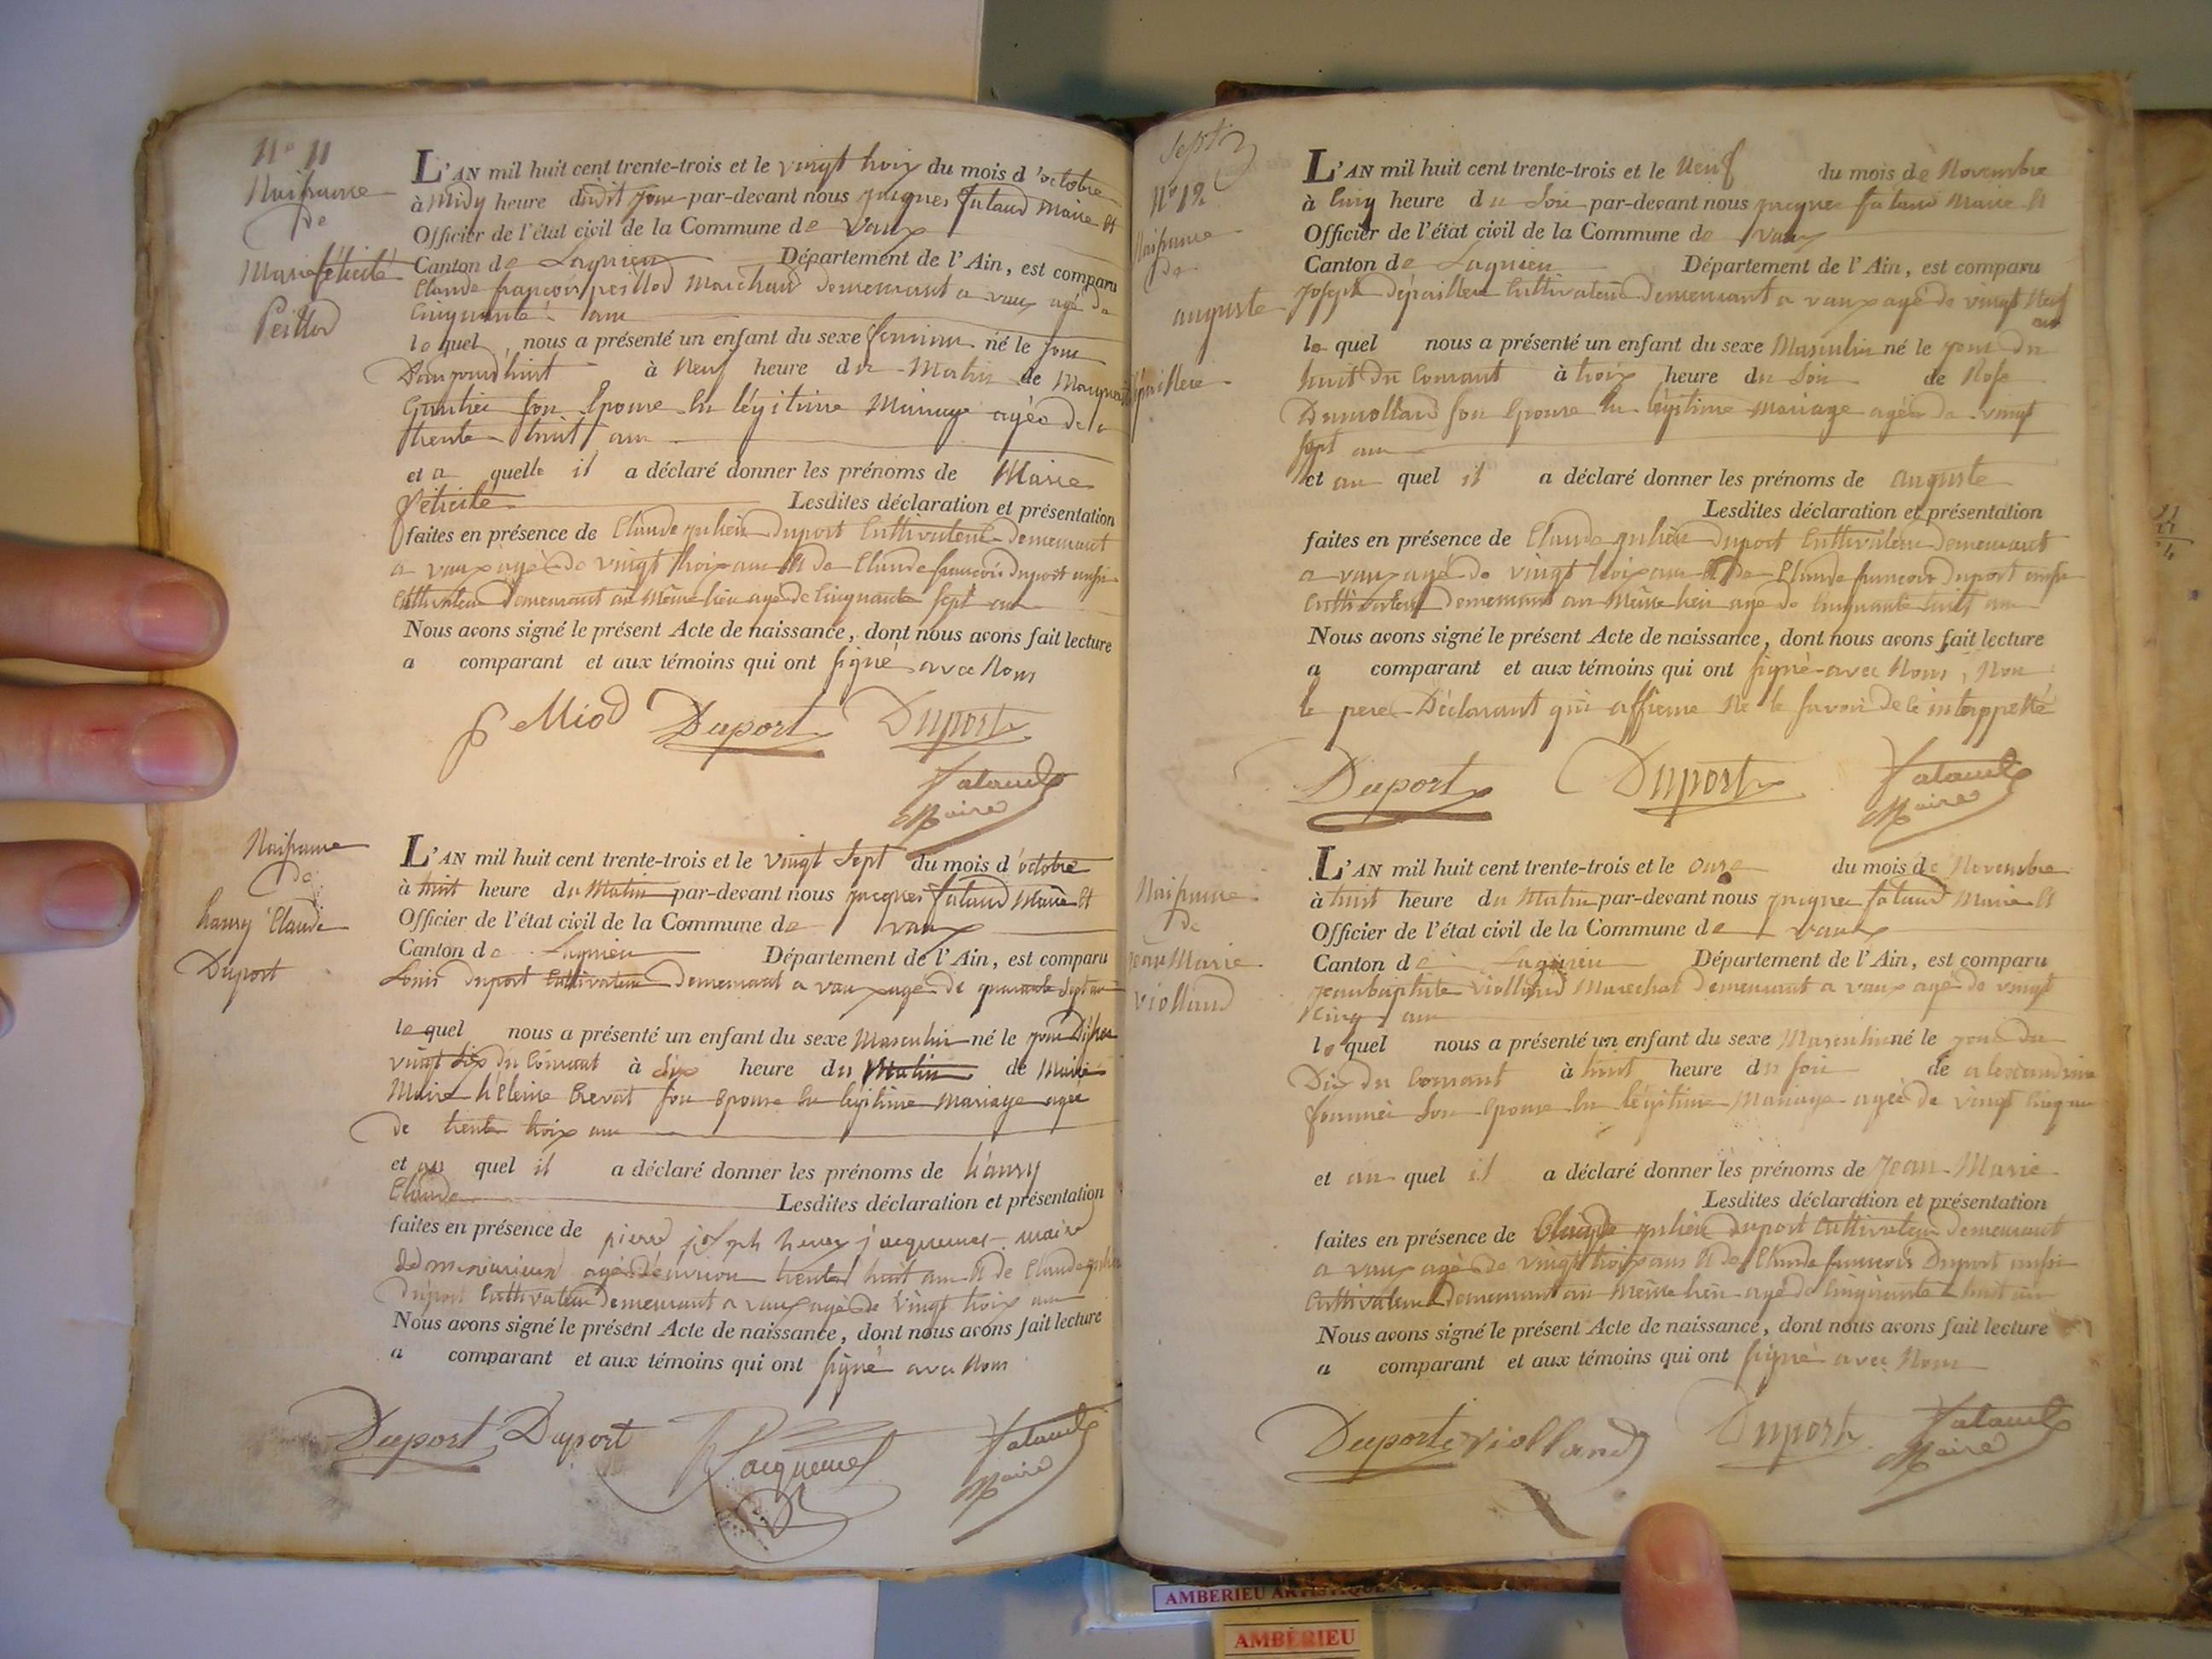 N° 11
Naissance
de
Marie félicité
Peillod
L'AN mil huit cent trente-trois et le vingt trois du mois d'octobre
à Midy heure dudit jour par-devant nous jacques fataud Maire et
Officier de l'état civil de la Commune de Vaux
Canton de Lagnieu Département de l'Ain, est comparu
Claude françois peillod Marchand demeurant a vaux agé de
Cinquante ans
le quel nous a présenté un enfant du sexe feminin né le jour
D'aujourd'huit à Neuf heure du Matin de
son Epouse En légitime Mariage agée de
trente huit ans
et a quelle il a déclaré donner les prénoms de Marie
félicité Lesdites déclaration et présentation
faites en présence de Claude julien duport Cultivateur demeurant
a vaux agé de vingt trois ans et de Claude françois duport aussi
Cultivateur demeurant au Même lieu agé de Cinquante sept ans
Nous avons signé le présent Acte de naissance, dont nous avons fait lecture
a comparant et aux témoins qui ont signé avec Nous
Duport Duport
fataud
Maire
Naissance
de
hanry Claude
Duport
L'AN mil huit cent trente-trois et le vingt Sept du mois d'octobre
à huit heure du Matin par-devant nous jacques fataud Maire et
Officier de l'état civil de la Commune de vaux
Canton de Lagnieu Département de l'Ain, est comparu
Louis duport Cultivateur demeurant a vaux agé de quarante Sept ans
le quel nous a présenté un enfant du sexe Masculin né le jour D'hier
vingt Six du Courant à Six heure du Matin de Marie
héleine son Epouse En légitime Mariage agée
de trente trois ans
et au quel il a déclaré donner les prénoms de hanry
Claude Lesdites déclaration et présentation
faites en présence de pierre joseph henry jacquemet maire
de agé d'environ trente huit ans et de Claude julien
duport Cultivateur demeurant a vaux agé de Vingt trois ans
Nous avons signé le présent Acte de naissance, dont nous avons fait lecture
a comparant et aux témoins qui ont signé avec Nous
Duport Duport Jacquemet fataud
Maire
Sept
N° 12
Naissance
de
auguste
dépaillere
L'AN mil huit cent trente-trois et le Neuf du mois de Novembre
à Cinq heure du Soir par-devant nous jacques fataud Maire et
Officier de l'état civil de la Commune de vaux
Canton de Lagnieu Département de l'Ain, est comparu
joseph dépaillere Cultivateur demeurant a vaux agé de vingt Neuf
ans
le quel nous a présenté un enfant du sexe Masculin né le jour du
huit du Courant à trois heure du Soir de Rose
Dumollard son Epouse En légitime Mariage agée de vingt
sept ans
et au quel il a déclaré donner les prénoms de auguste
Lesdites déclaration et présentation
faites en présence de Claude julien duport Cultivateur demeurant
a vaux agé de vingt trois ans et de Claude françois duport aussi
Cultivateur demeurant au Même lieu agé de Cinquante huit ans
Nous avons signé le présent Acte de naissance, dont nous avons fait lecture
a comparant et aux témoins qui ont signé avec Nous, Non
le pere Déclarant qui affirme Ne le savoir de ce interppellé
Duport Duport fataud
Maire
Naissance
de
jean Marie
violland
L'AN mil huit cent trente-trois et le onze du mois de Novembre
à huit heure du Matin par-devant nous jacques fataud Maire et
Officier de l'état civil de la Commune de vaux
Canton de Lagnieu Département de l'Ain, est comparu
jean baptiste violland Marechal demeurant a vaux agé de vingt
Cinq ans
le quel nous a présenté un enfant du sexe Masculin né le jour du
Dix du Courant à huit heure du soir de alexandrine
son Epouse En légitime Mariage agée de vingt
et au quel il a déclaré donner les prénoms de jean Marie
Lesdites déclaration et présentation
faites en présence de Claude julien duport Cultivateur demeurant
a vaux agé de vingt trois ans et de Claude francois Duport aussi
Cultivateur demeurant au Même lieu agé de Cinquante huit ans
Nous avons signé le présent Acte de naissance, dont nous avons fait lecture
a comparant et aux témoins qui ont signé avec Nous
Duport violland Duport fataud
Maire
AMBERIEU
AMBÉRIEU